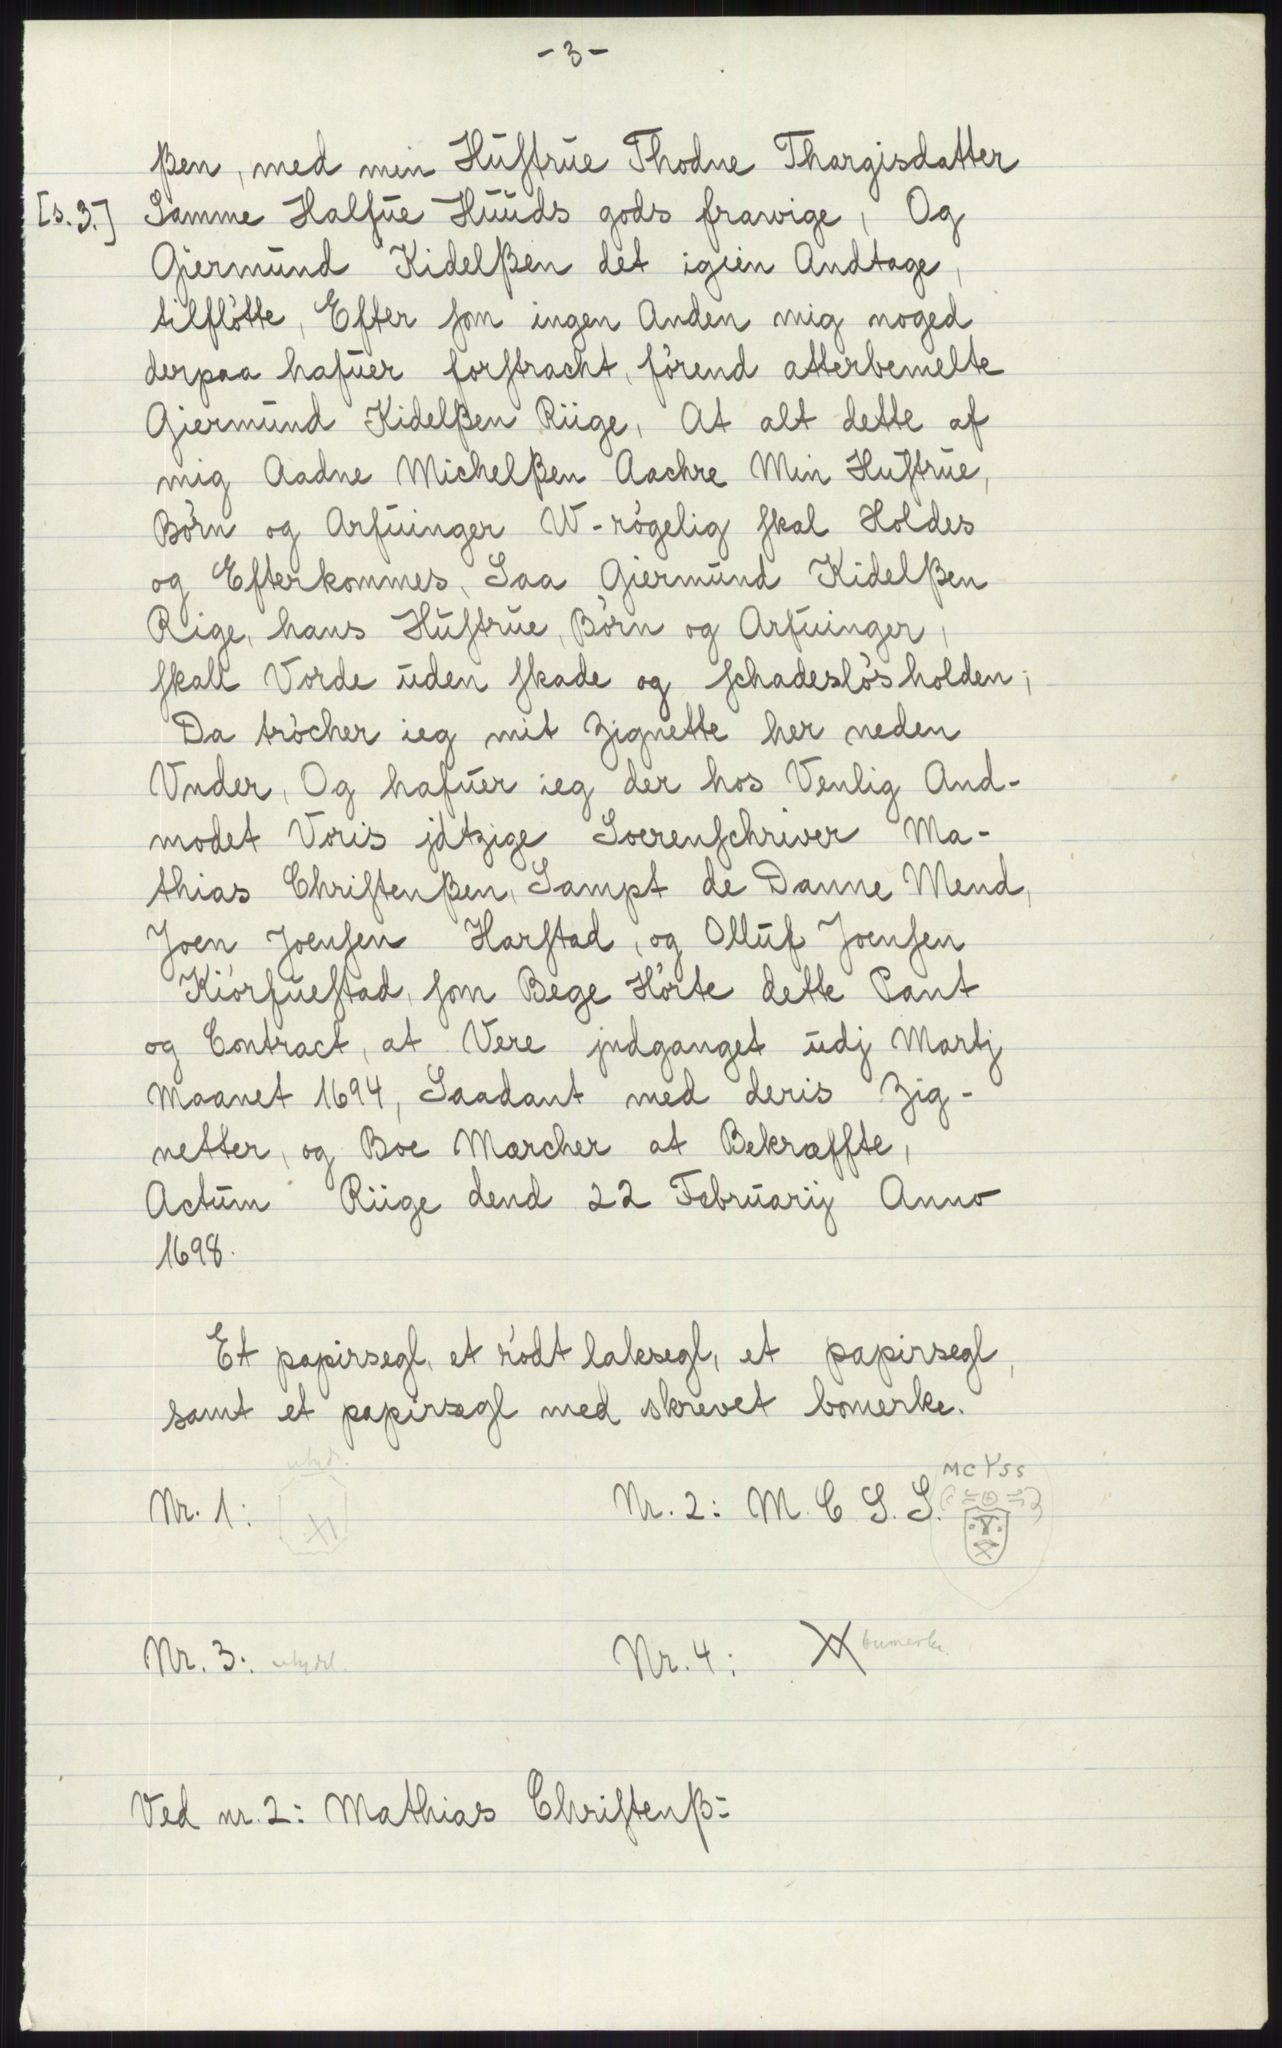 - 3 -
ßen, med min Huſtrŭe Thodne Thargisdatter
[s. 3.] Samme Halfŭe Hŭŭds gods frawige, Og
Gjermŭnd Kidelßen det igien Andtage,
tilfløtte, Efter ſom ingen Anden mig noged
derpaa hafŭer forſtracht, førend atterbemelte
Gjermŭnd Kidelßen Riige, At alt dette af
mig Aadne Michelßen Aachre Min Huſtrŭe,
Børn og Arfŭinger W-røgelig ſkal Holdes
og Efterkommes, Saa Gjermŭnd Kidelßen
Rige, hans Hŭſtrŭe, Børn og Arfŭinger,
ſkall Vorde ŭden ſkade og ſchadesløs holden;
Da trøcher ieg mit Zignette her neden
Vnder, Og hafŭer ieg der hos Venlig And-
modet Voris jdtzige Soerenſchriver Ma-
thias Chriſtenßen, Sampt de Danne Mend,
Joen Joenſen Harſtad, og Ollŭf Joenſen
Kiørfŭeſtad, ſom Bege Hørte dette Pant
og Contract, at Vere jndganget ŭdj Martj
Maanet 1694, Saadant med deris Zig-
netter, og Boe Mærcher at Bekræffte,
Actŭm Riige dend 22 Febrŭarij Anno
1698.
Et papirsegl, et rødt laksegl, et papirsegl,
samt et papirsegl med skrevet bomerke.
utydl.
MCYSS
Nr. 1: Nr. 2: M. C. S. S.
Nr. 3: utydel. Nr. 4: bumerke
Ved nr. 2: Mathias Chriſtenß: